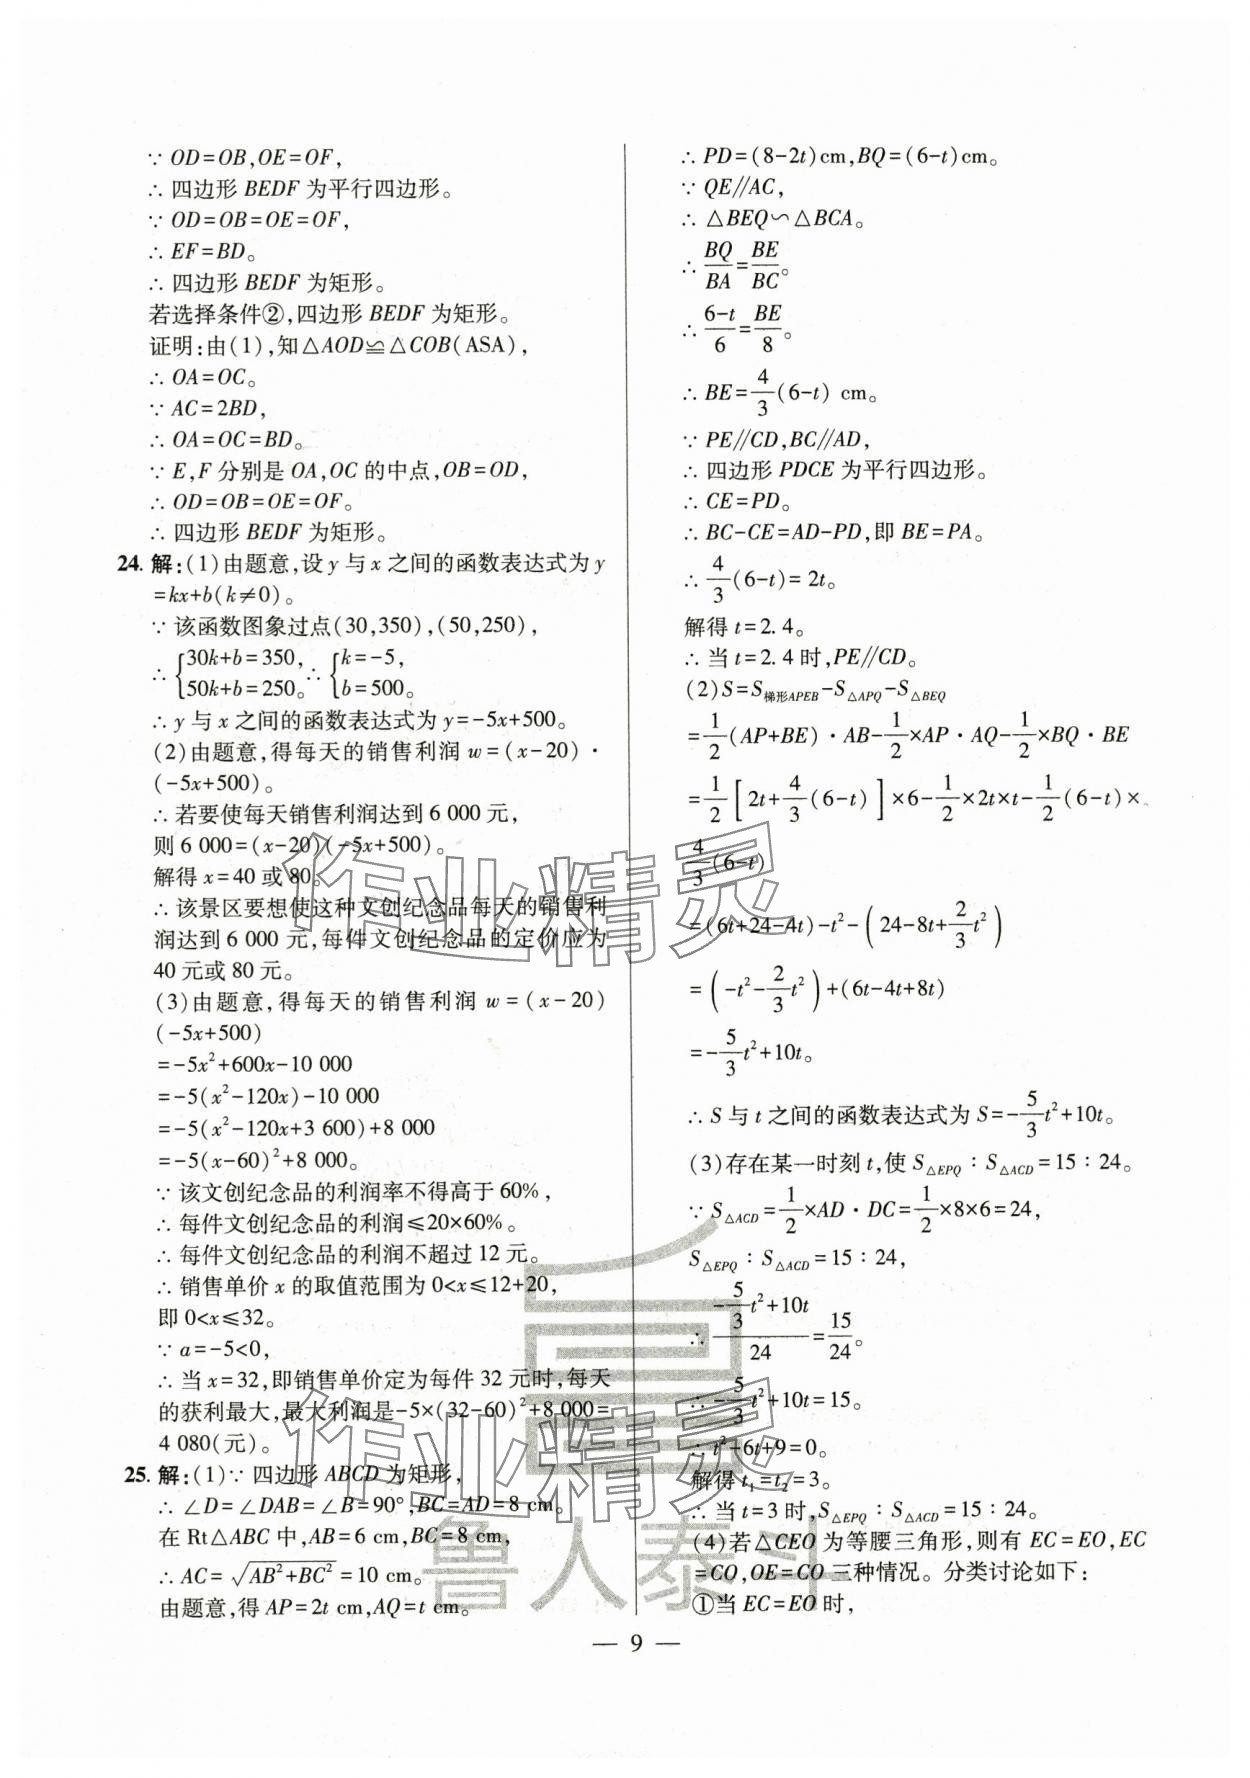 ∵ OD=OB,OE=OF,
∴ 四边形 BEDF 为平行四边形。
∵ OD=OB=OE=OF,
∴ EF=BD。
∴ 四边形 BEDF 为矩形。
若选择条件②,四边形 BEDF 为矩形。
证明:由(1),知△AOD≌△COB(ASA),
∴ OA=OC。
∵ AC=2BD,
∴ OA=OC=BD。
∵ E,F 分别是 OA,OC 的中点,OB=OD,
∴ OD=OB=OE=OF。
∴ 四边形 BEDF 为矩形。
24. 解:(1)由题意,设 y 与 x 之间的函数表达式为 y
=kx+b(k≠0)。
∵ 该函数图象过点(30,350),(50,250),
∴ {30k+b=350, 50k+b=250。 ∴ {k=-5, b=500。
∴ y 与 x 之间的函数表达式为 y=-5x+500。
(2)由题意,得每天的销售利润 w=(x-20)·
(-5x+500)。
∴ 若要使每天销售利润达到 6 000 元,
则 6 000=(x-20)(-5x+500)。
解得 x=40 或 80。
∴ 该景区要想使这种文创纪念品每天的销售利
润达到 6 000 元,每件文创纪念品的定价应为
40 元或 80 元。
(3)由题意,得每天的销售利润 w=(x-20)
(-5x+500)
=-5x²+600x-10 000
=-5(x²-120x)-10 000
=-5(x²-120x+3 600)+8 000
=-5(x-60)²+8 000。
∵ 该文创纪念品的利润率不得高于 60%,
∴ 每件文创纪念品的利润≤20×60%。
∴ 每件文创纪念品的利润不超过 12 元。
∴ 销售单价 x 的取值范围为 0<x≤12+20,
即 0<x≤32。
∵ a=-5<0,
∴ 当 x=32,即销售单价定为每件 32 元时,每天
的获利最大,最大利润是-5×(32-60)²+8 000=
4 080(元)。
25. 解:(1)∵ 四边形 ABCD 为矩形,
∴ ∠D=∠DAB=∠B=90°,BC=AD=8 cm。
在 Rt△ABC 中,AB=6 cm,BC=8 cm,
∴ AC=√(AB²+BC²)=10 cm。
由题意,得 AP=2t cm,AQ=t cm。
∴ PD=(8-2t)cm,BQ=(6-t)cm。
∵ QE∥AC,
∴ △BEQ∽△BCA。
∴ BQ/BA=BE/BC。
∴ (6-t)/6=BE/8。
∴ BE=4/3(6-t) cm。
∵ PE∥CD,BC∥AD,
∴ 四边形 PDCE 为平行四边形。
∴ CE=PD。
∴ BC-CE=AD-PD,即 BE=PA。
∴ 4/3(6-t)=2t。
解得 t=2.4。
∴ 当 t=2.4 时,PE∥CD。
(2)S=S梯形APEB-S△APQ-S△BEQ
=1/2(AP+BE)·AB-1/2×AP·AQ-1/2×BQ·BE
=1/2[2t+4/3(6-t)]×6-1/2×2t×t-1/2(6-t)×
4/3(6-t)
=(6t+24-4t)-t²-(24-8t+2/3t²)
=(-t²-2/3t²)+(6t-4t+8t)
=-5/3t²+10t。
∴ S 与 t 之间的函数表达式为 S=-5/3t²+10t。
(3)存在某一时刻 t,使 S△EPQ∶S△ACD=15∶24。
∵ S△ACD=1/2×AD·DC=1/2×8×6=24,
S△EPQ∶S△ACD=15∶24,
∴ (-5/3t²+10t)/24=15/24。
∴ -5/3t²+10t=15。
∴ t²-6t+9=0。
解得 t₁=t₂=3。
∴ 当 t=3 时,S△EPQ∶S△ACD=15∶24。
(4)若△CEO 为等腰三角形,则有 EC=EO,EC
=CO,OE=CO 三种情况。分类讨论如下:
①当 EC=EO 时,
作业精灵
作业精灵
鲁人泰斗
— 9 —